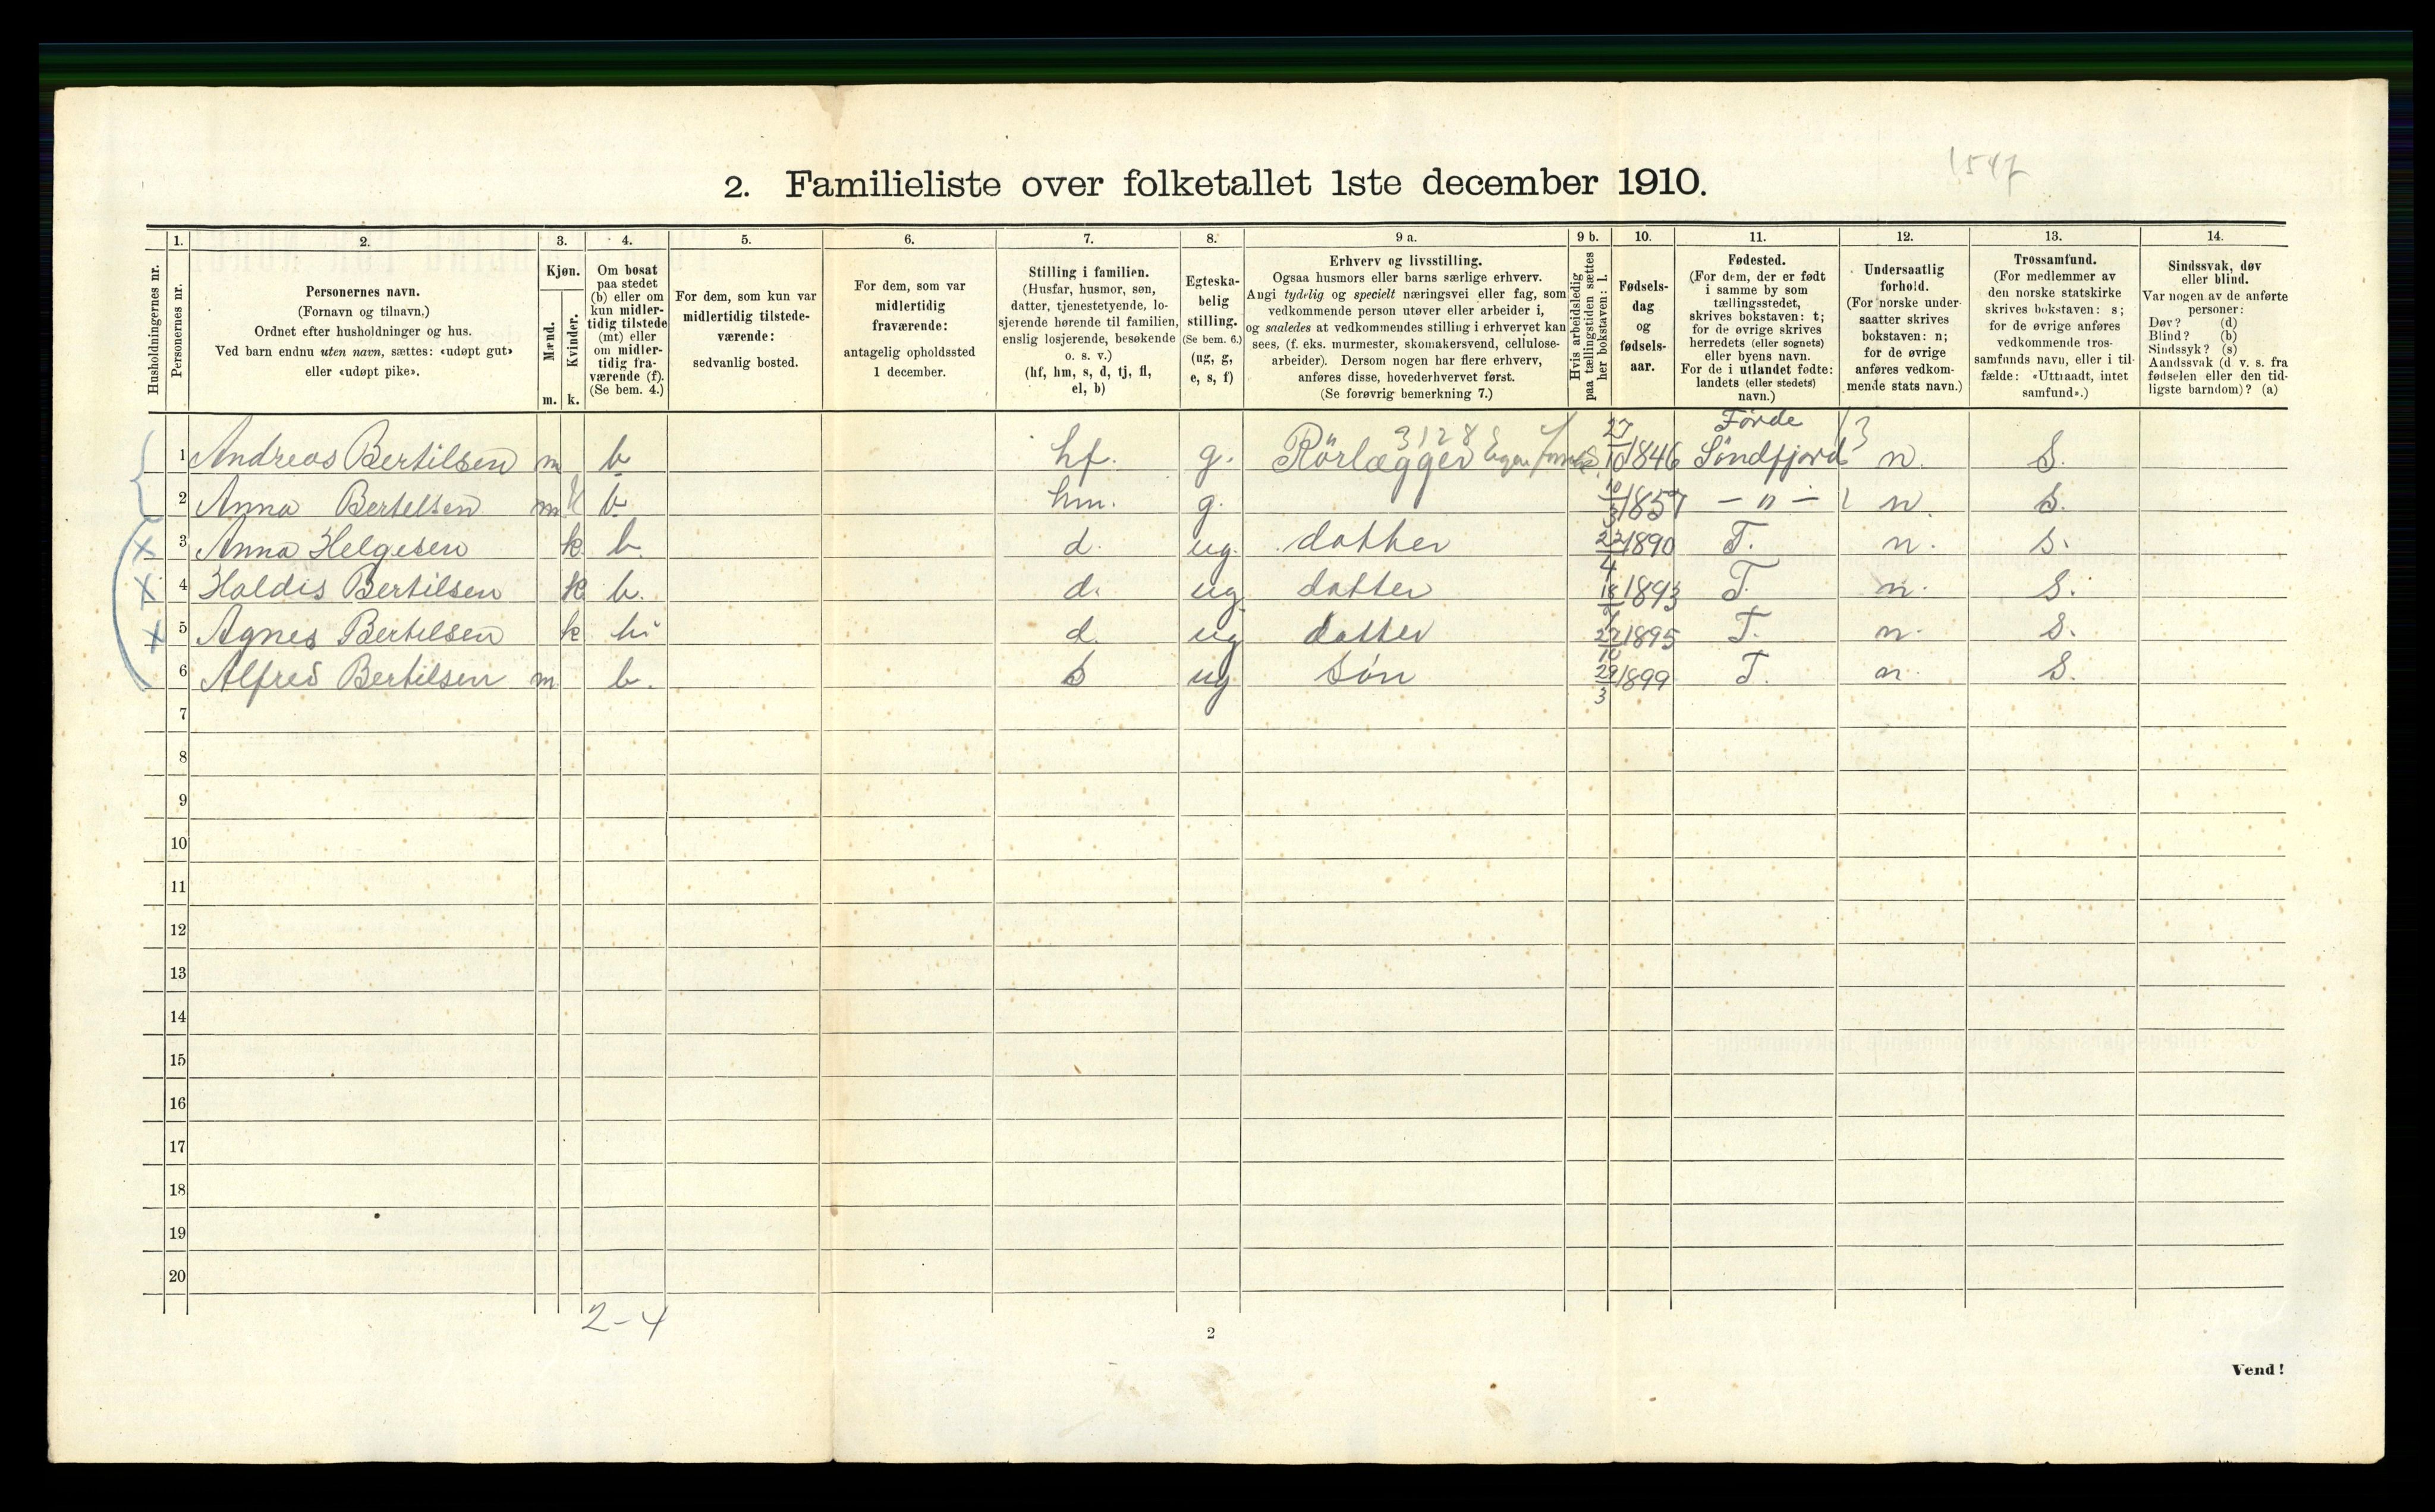 1547
2. Familieliste over folketallet 1ste december 1910.
Husholdningernes nr.
1.
Personernes nr.
2.
Personernes navn.
(Fornavn og tilnavn,)
Ordnet efter husholdninger og hus.
Ved barn endnu uten navn, sættes: «udøpt gut»
eller «udøpt pike».
3.
Kjøn.
Mænd.
Kvinder.
m. k.
4.
Om bosat
paa stedet
(b) eller om
kun midler-
tidig tilstede
(mt) eller
om midler-
tidig fra-
værende (f).
(Se bem. 4.)
5.
For dem, som kun var
midlertidig tilstede-
værende:
sedvanlig bosted.
6.
For dem, som var
midlertidig
fraværende:
antagelig opholdssted
1 december.
7.
Stilling i familien.
(Husfar, husmor, søn,
datter, tjenestetyende, lo-
sjerende hørende til familien,
enslig losjerende, besøkende
o. s. v.)
(hf, hm, s, d, tj, fl,
el, b)
8.
Egteska-
belig
stilling.
(Se bem. 6.)
(ug, g,
e, s, f)
9 a.
Erhverv og livsstilling.
Ogsaa husmors eller barns særlige erhverv.
Angi tydelig og specielt næringsvei eller fag, som
vedkommende person utøver eller arbeider i,
og saaledes at vedkommendes stilling i erhvervet kan
sees, (f. eks. murmester, skomakersvend, cellulose-
arbeider). Dersom nogen har flere erhverv,
anføres disse, hovederhvervet først.
(Se forøvrig bemerkning 7.)
9 b.
Hvis arbeidsledig
paa tællingstiden sættes
her bokstaven: l.
10.
Fødsels-
dag
og
fødsels-
aar.
11.
Fødested.
(For dem, der er født
i samme by som
tællingsstedet,
skrives bokstaven: t;
for de øvrige skrives
herredets (eller sognets)
eller byens navn.
For de i utlandet fødte:
landets (eller stedets)
navn.)
12.
Undersaatlig
forhold.
(For norske under-
saatter skrives
bokstaven: n;
for de øvrige
anføres vedkom-
mende stats navn.)
13.
Trossamfund.
(For medlemmer av
den norske statskirke
skrives bokstaven: s;
for de øvrige anføres
vedkommende tros-
samfunds navn, eller i til-
fælde: «Uttraadt, intet
samfund».)
14.
Sindssvak, døv
eller blind.
Var nogen av de anførte
personer:
Døv? (d)
Blind? (b)
Sindssyk? (s)
Aandssvak (d. v. s. fra
fødselen eller den tid-
ligste barndom)? (a)
3128 Førde
1 Andreas Bertilsen m b hf. g. Rörlægger 27/10 1846 Söndfjord n. S.
2 Anna Bertelsen m k b hm. g. 10/3 1857 – " – n. S.
X 3 Anna Helgesen k b. d. ug. datter 22/4 1890 T. n. S.
X 4 Haldis Bertilsen k b. d. ug. datter 1893 T. n. S.
X 5 Agnes Bertelsen k d. ug datter 27/10 1895 T. n. S.
6 Alfred Bertilsen m b. S ug Sön 29/3 1899 T. n. S.
7
8
9
10
11
12
13
14
15
16
17
18
19
20
2-4
2
Vend!